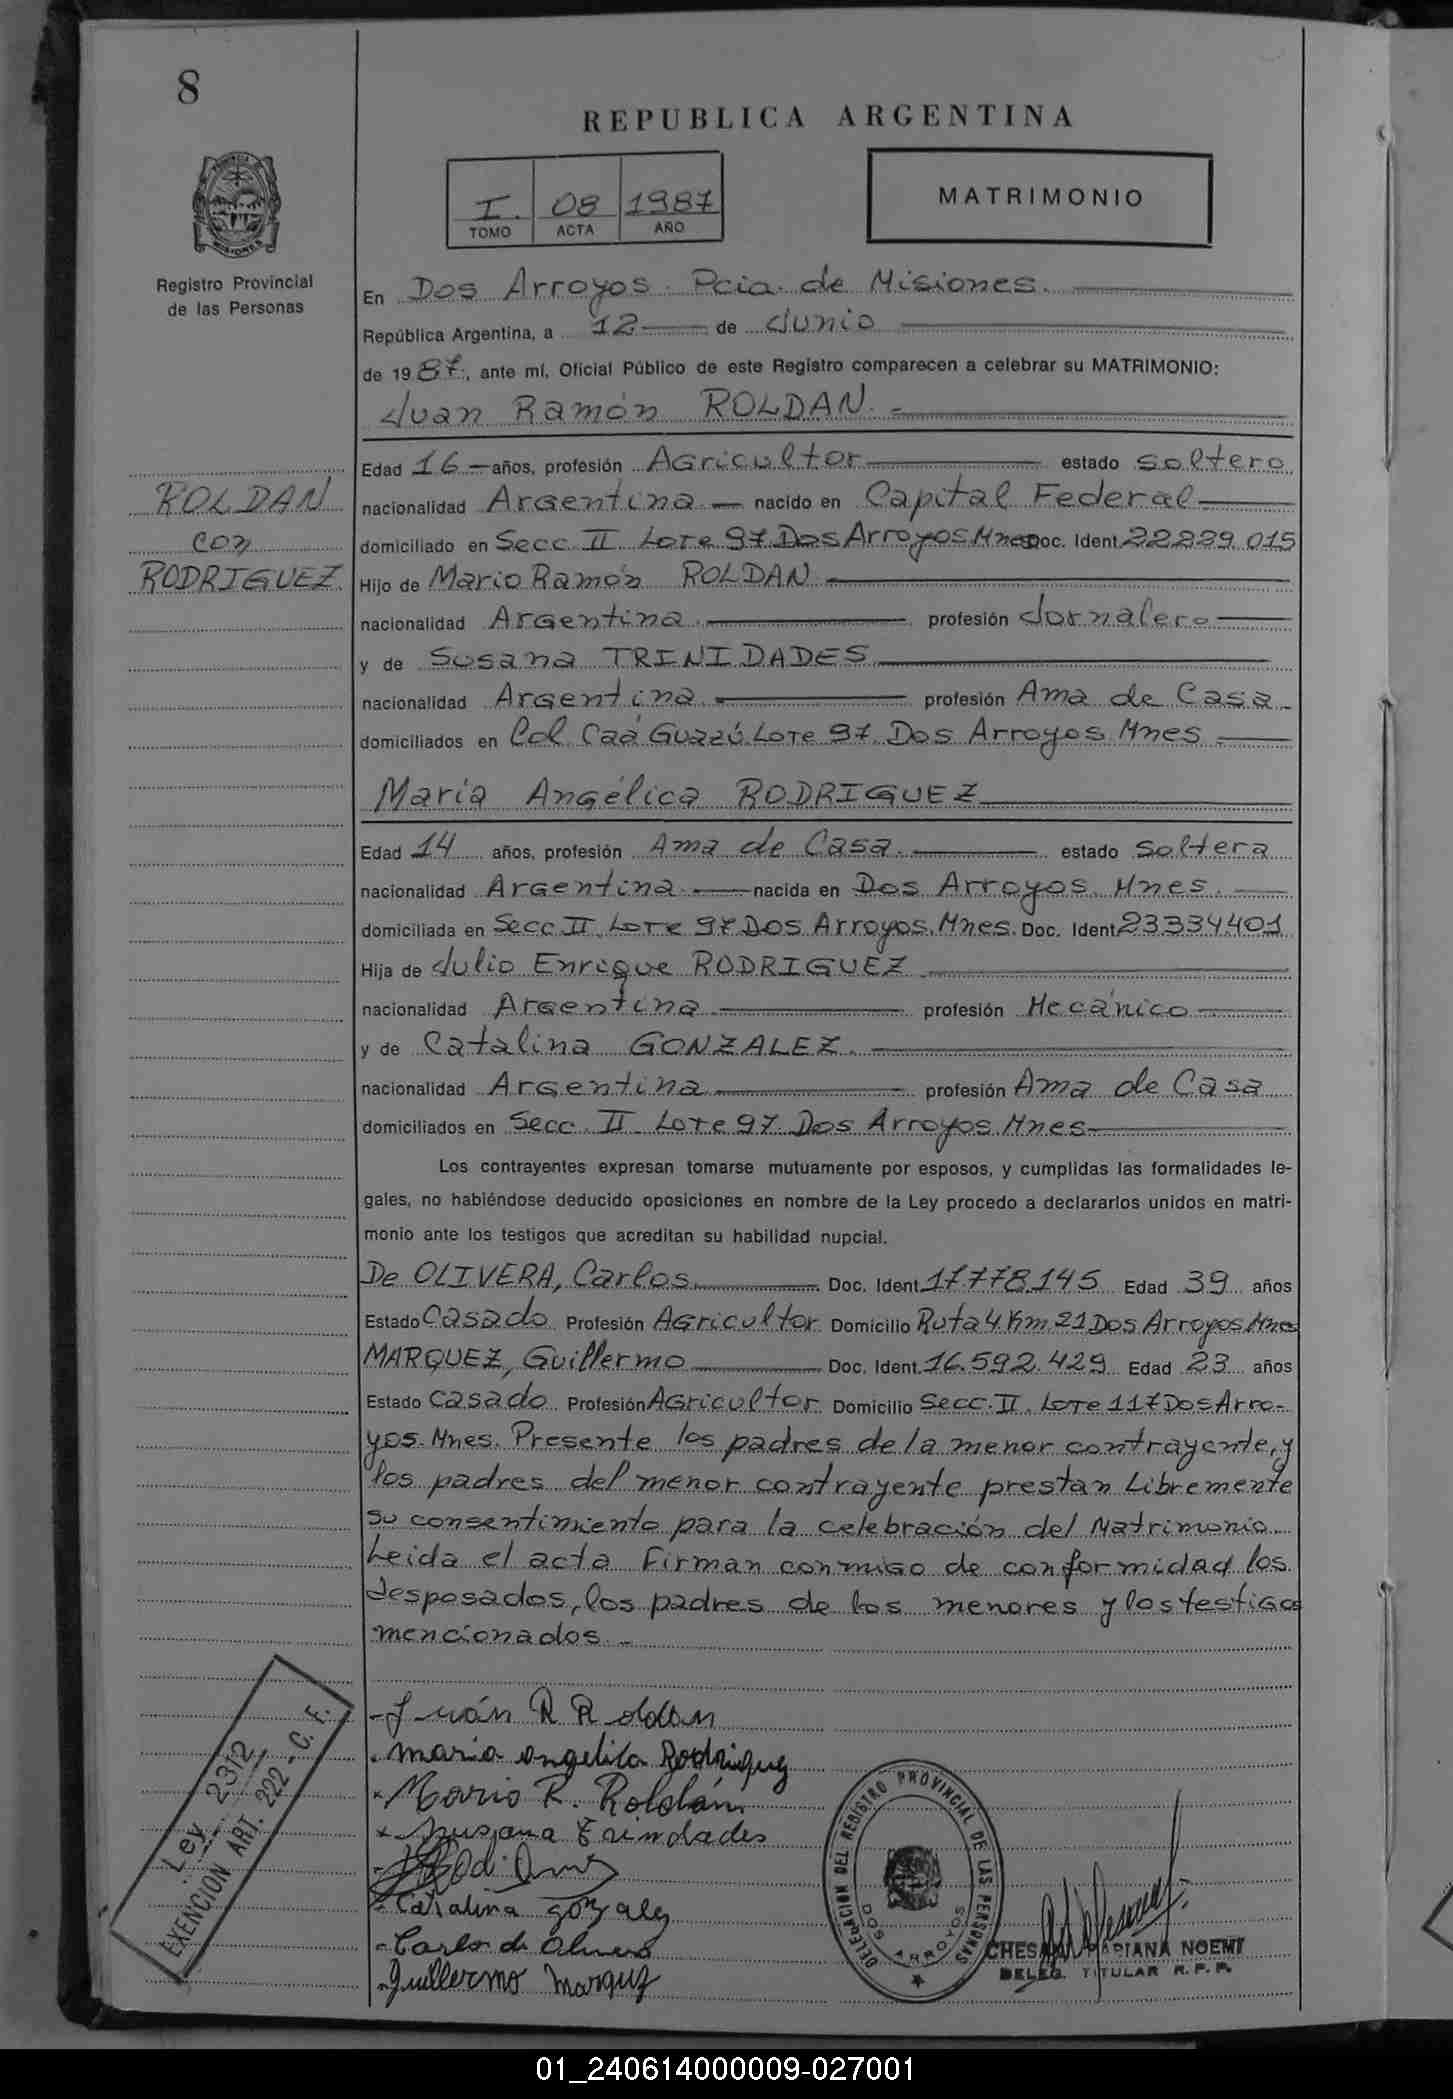 8
REPUBLICA ARGENTINA
I. 08 1987
TOMO ACTA AÑO
MATRIMONIO
Registro Provincial
de las Personas
En Dos Arroyos. Pcia. de Misiones.
República Argentina, a 12 de Junio
de 1987, ante mí, Oficial Público de este Registro comparecen a celebrar su MATRIMONIO:
Juan Ramón ROLDAN.
Edad 16 años, profesión Agricultor estado soltero
ROLDAN
con
RODRIGUEZ
nacionalidad Argentina nacido en Capital Federal
domiciliado en Secc. II Lote 97 Dos Arroyos Mnes Doc. Ident. 22229.015
Hijo de Mario Ramón ROLDAN
nacionalidad Argentina profesión Jornalero
y de Susana TRINIDADES
nacionalidad Argentina profesión Ama de Casa
domiciliados en Col. Caá Guazú. Lote 97. Dos Arroyos Mnes.
María Angélica RODRIGUEZ
Edad 14 años, profesión Ama de Casa. estado Soltera
nacionalidad Argentina nacida en Dos Arroyos. Mnes.
domiciliada en Secc II. Lote 97 Dos Arroyos. Mnes. Doc. Ident 23334.401
Hija de Julio Enrique RODRIGUEZ
nacionalidad Argentina profesión Mecánico
y de Catalina GONZALEZ.
nacionalidad Argentina profesión Ama de Casa
domiciliados en Secc. II Lote 97 Dos Arroyos. Mnes
Los contrayentes expresan tomarse mutuamente por esposos, y cumplidas las formalidades le-
gales, no habiéndose deducido oposiciones en nombre de la Ley procedo a declararlos unidos en matri-
monio ante los testigos que acreditan su habilidad nupcial.
De OLIVERA, Carlos Doc. Ident. 17.778.145 Edad 39 años
Estado Casado Profesión Agricultor Domicilio Ruta 4 Km 21 Dos Arroyos Mnes
MARQUEZ, Guillermo Doc. Ident. 16.592.429 Edad 23 años
Estado Casado Profesión Agricultor Domicilio Secc. II. Lote 117 Dos Arro-
yos. Mnes. Presente los padres de la menor contrayente, y
los padres del menor contrayente prestan Libremente
su consentimiento para la celebración del Matrimonio.
Leida el acta Firman conmigo de conformidad los
desposados, los padres de los menores y los testigos
mencionados.
Ley 2312
EXENCION ART. 222 - C. F.
Juán R Roldan
maria angelica Rodriguez
Mario R. Roldán
Susana Trindades
Catalina gonzalez
Carlos de Olivera
Guillermo Marquez
DELEGACION DEL REGISTRO PROVINCIAL DE LAS PERSONAS
DOS ARROYOS
MARIANA NOEMI
DELEG. TITULAR R. P. P.
01_240614000009-027001